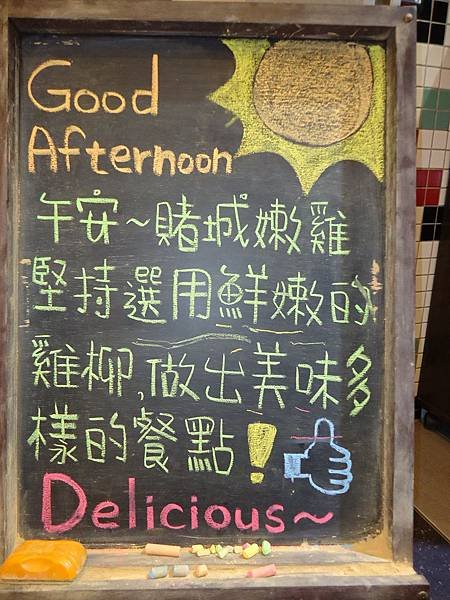 Good
Afternoon
午安~賭城嫩雞
堅持選用鮮嫩的
雞柳,做出美味多
樣的餐點!
Delicious~